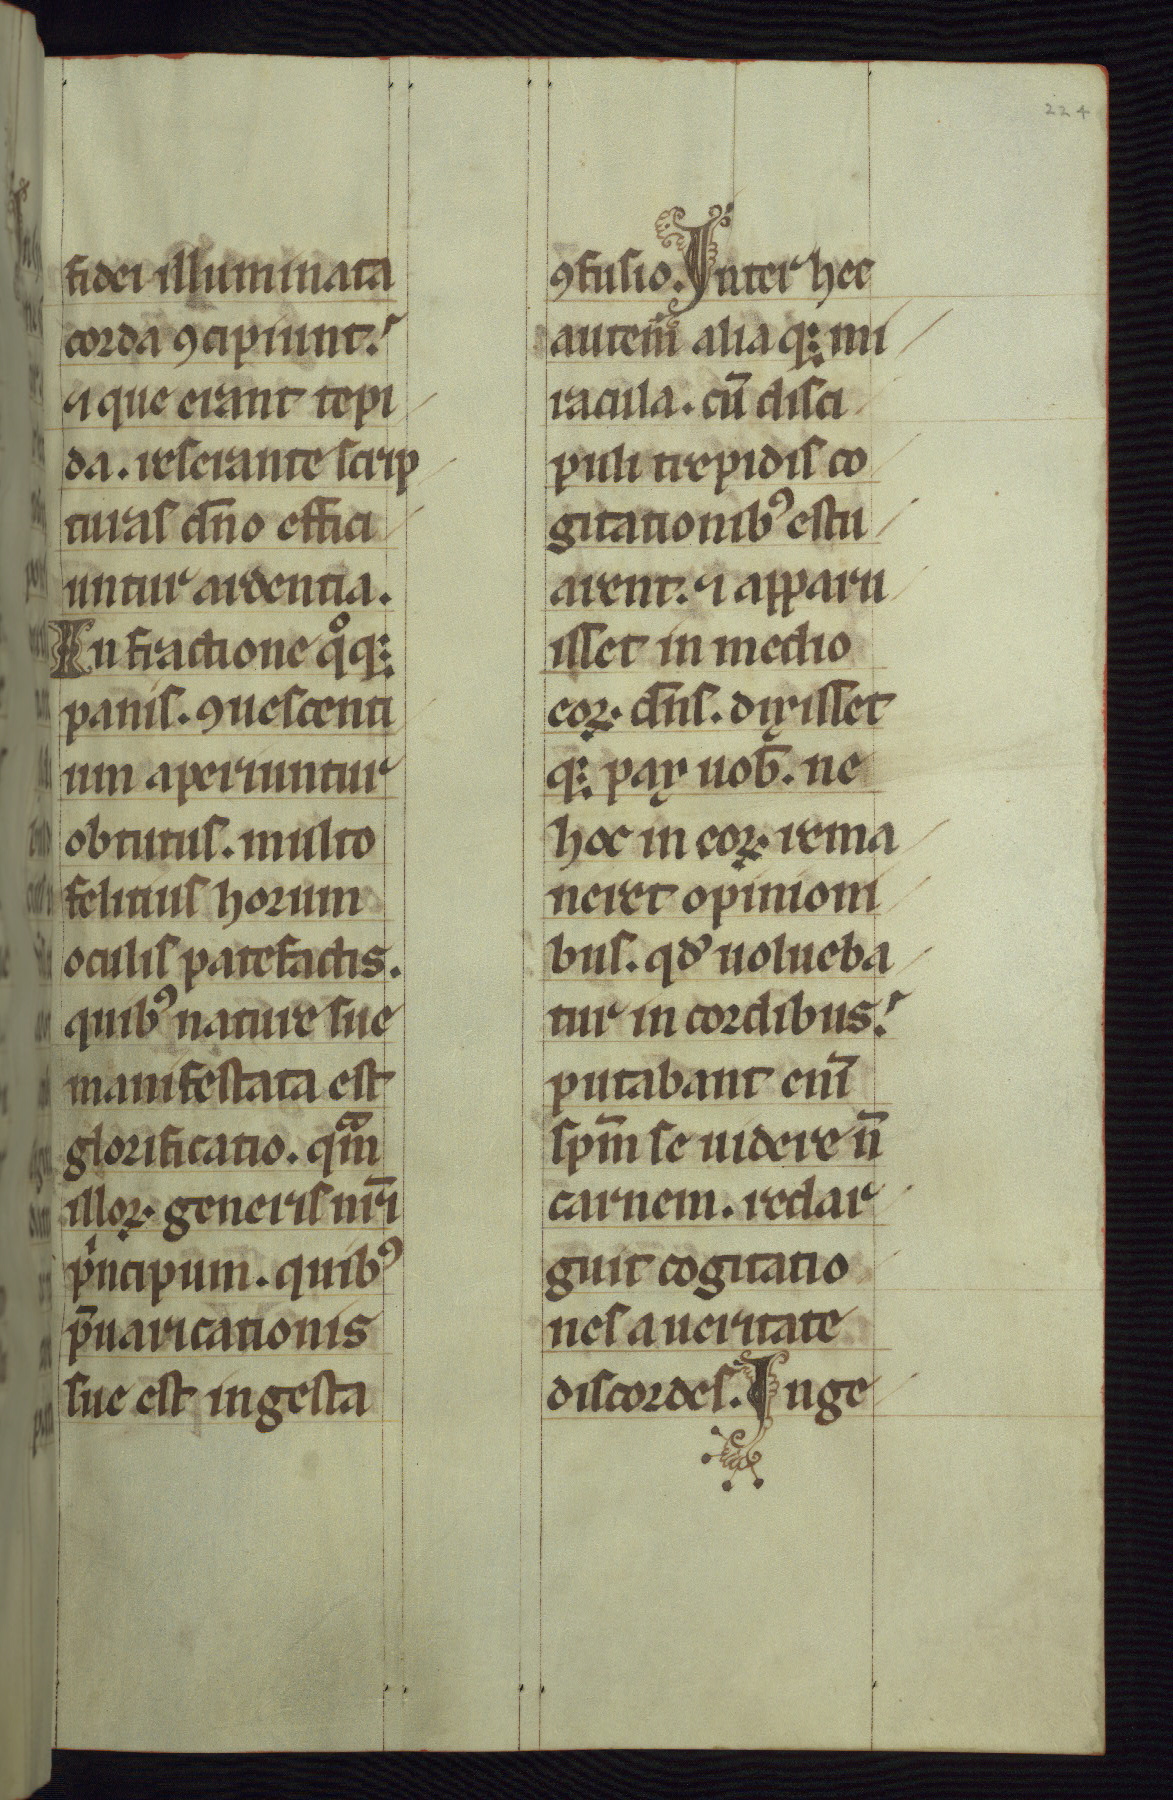 224
fidei illuminata
corda ꝯcipiunt.
⁊ que erant tepi
da. reserante scrip
turas dn̄o effici
untur ardentia.
In fractione qͦq;
panis. ꝯuescenti
um aperiuntur
obtutus. multo
felicius horum
oculis patefactis.
quibꝰ nature sue
manifestata est
glorificatio. qᵃm
illoꝝ generis nr̄i
pⁱncipum. quibꝰ
p̄uaricationis
sue est ingesta
ꝯfusio. Inter hec
autem̄ alia q; mi
racula. cū disci
puli trepidis co
gitationibꝰ estu
arent. ⁊ apparu
isset in medio
eoꝝ dn̄s. dixisset
q; pax uob̄. ne
hoc in eoꝝ rema
neret opinioni
bus. qd̓ uolueba
tur in cordibus.
putabant eni̅
sp̄m se uidere n̄
carnem. redar
guit cogitatio
nes a ueritate
discordes. Inge